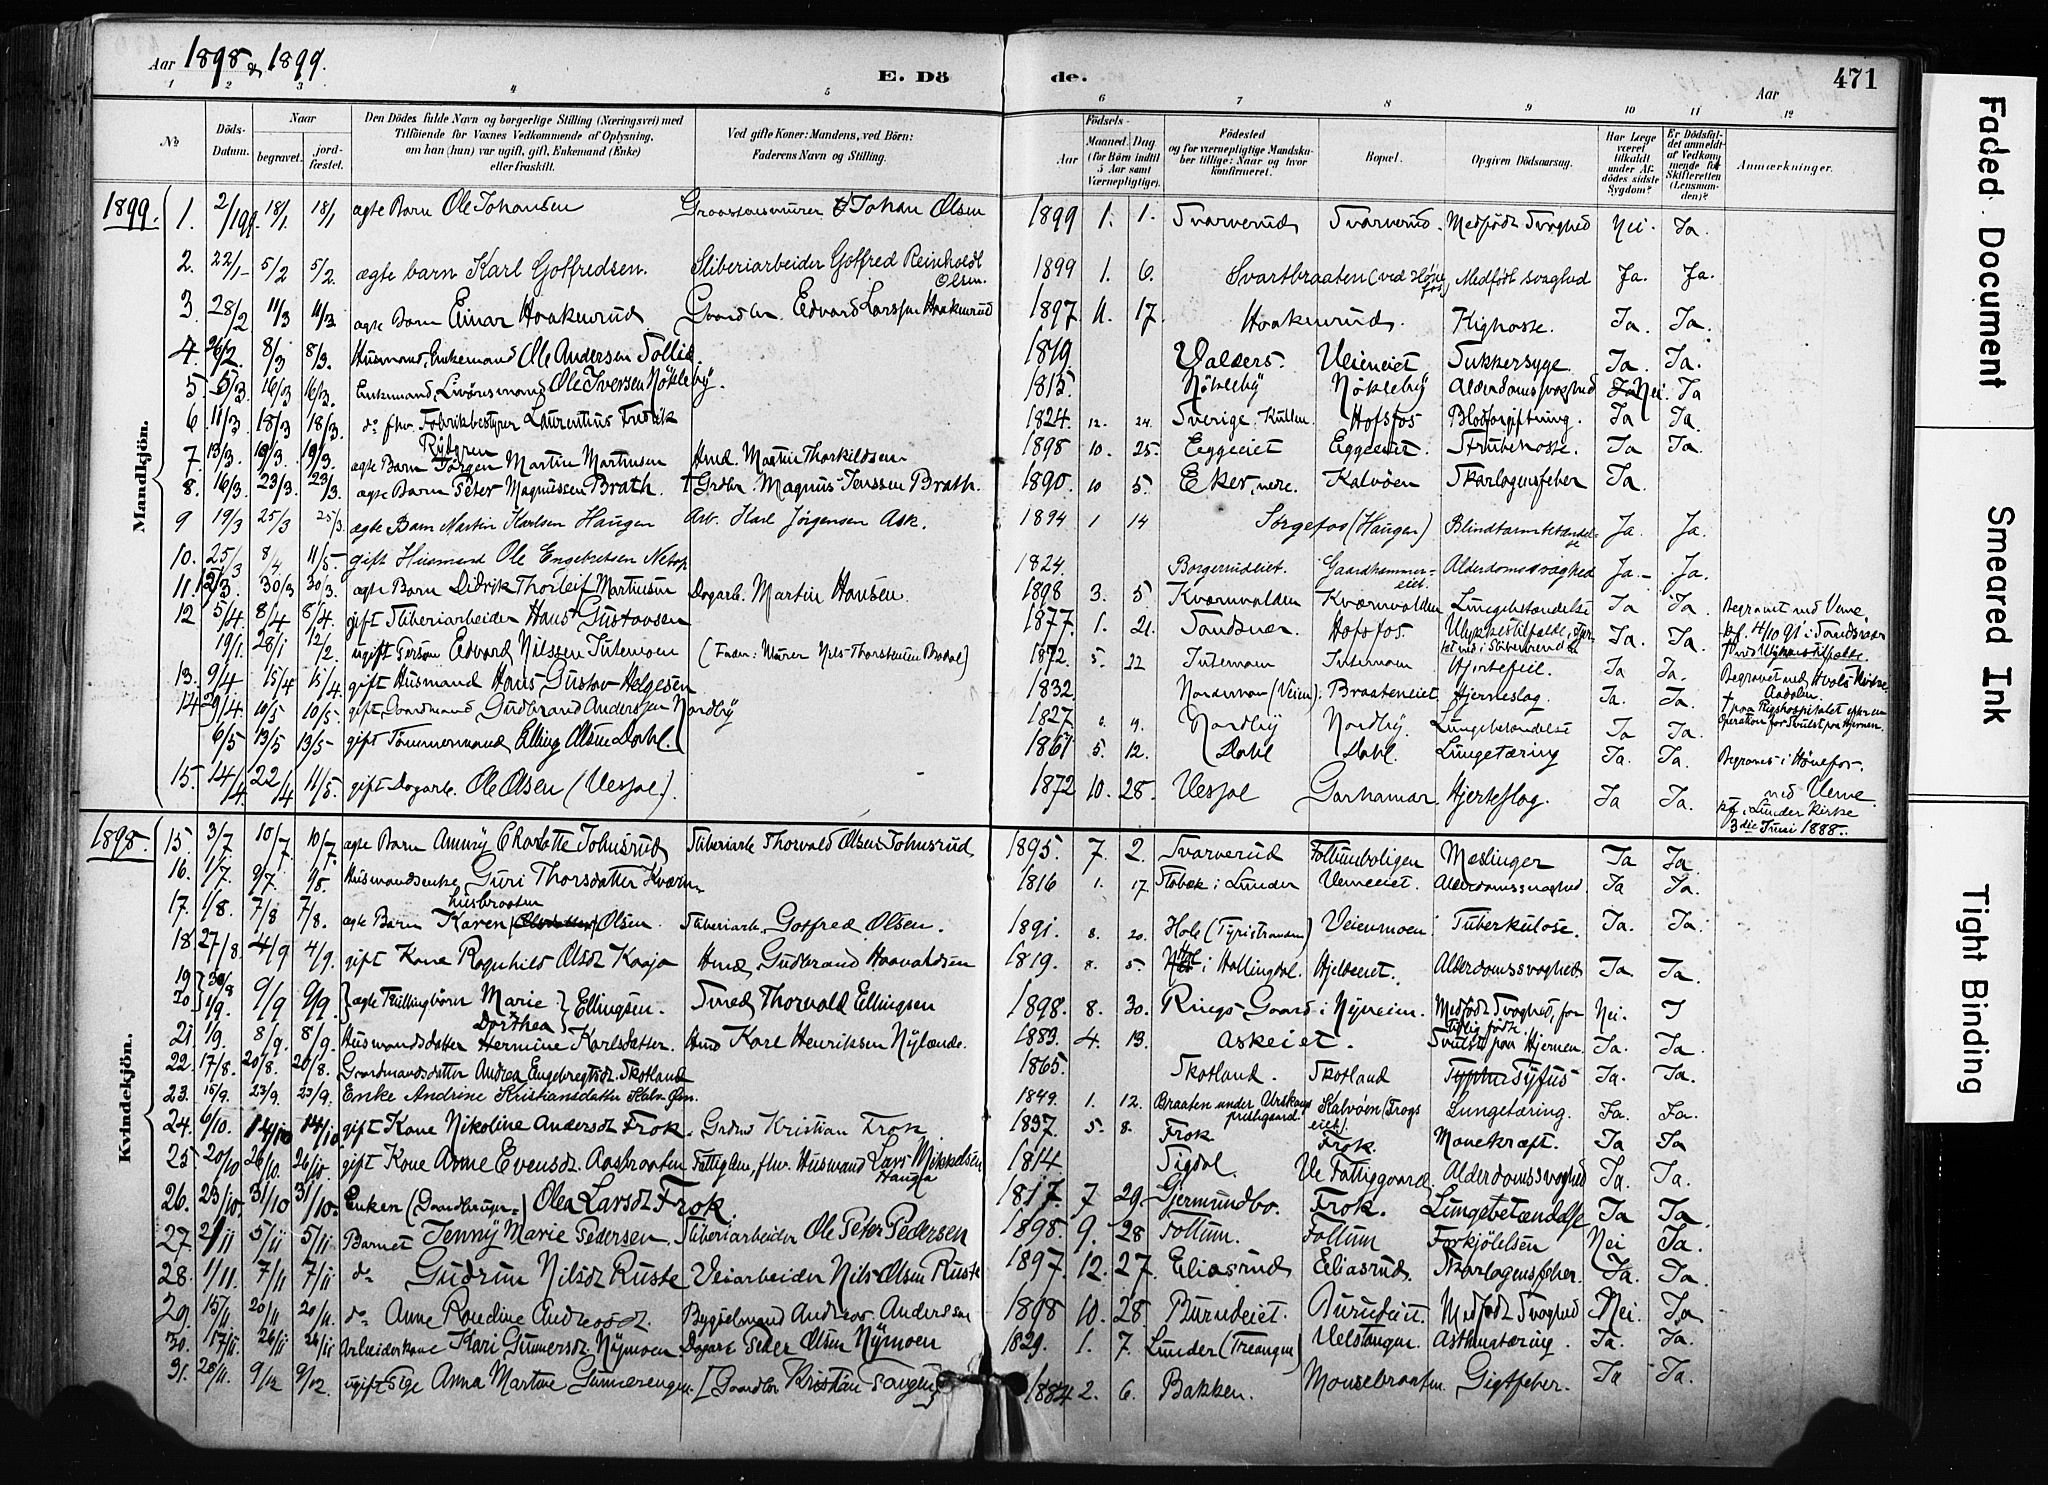 Aar 1898 & 1899.
E. Dö de.
Aar
471
1 2 3 4 5 6 7 8 9 10 11 12
№
Döds-Datum.
Naar
begravet.
jord-fæstet.
Den Dödes fulde Navn og borgerlige Stilling (Næringsvei) med
Tilföiende for Voxnes Vedkommende af Oplysning,
om han (hun) var ugift, gift, Enkemand (Enke)
eller fraskilt.
Ved gifte Koner: Mandens, ved Börn:
Faderens Navn og Stilling.
Födsels-
Aar
Maaned. Dag
(for Börn indtil
5 Aar samt
Værnepligtige).
Födested
og for værnepligtige Mandska-
ber tillige: Naar og hvor
konfirmeret.
Bopæl.
Opgiven Dödsaarsag.
Har Læge
været
tilkaldt
under Af-
dödes sidste
Sygdom?
Er Dödsfal-
det anmeldt
af Vedkom-
mende for
Skifteretten
(Lensman-
den)?
Anmærkninger.
Mandkjön.
1899. 1. 2/1 99. 18/1 18/1 ægte Barn Ole Johansen Johan Olsen 1899 1. 1. Svarverud Svarverud. Medfödt Svaghed Nei. Ja.
2. 22/1 5/2 5/2. ægte barn Karl Gotfredsen. Sliberiarbeider Gotfred Reinholdt Olsen. 1899 1. 6. Svartbraaten (ved Hönefos) Medfödt svaghed Ja. Ja.
3 28/2 11/3 11/3 ægte Barn Einar Haakenrud Gaardbr. Edvard Larssen Haakenrud 1897 11. 17. Haakenrud. Kighoste. Ja. Ja.
4. 26/2. 8/3 8/3. Husmand, Enkemand Ole Andersen Sollid. 1819 Valders. Veieneiet Sukkersyge. Ja Ja.
5. 5/3 16/3 16/3. Enkemand, Livöresmand Ole Iversen Nökleby. 1815. Nökleby Nökleby Alderdomssvaghed Nei. Ja
6 11/3 18/3 18/3. do fhv. Fabrikbestyrer Laurentius Fredrik Rydgren 1824. 12. 24. Sverige, Hofsfos Blodforgiftning. Ja Ja.
7. 13/3. 19/3. 19/3. ægte Barn Jörgen Martin Martinsen Hmd. Martin Thorkildsen 1898 10. 25. Eggeeiet Eggeeiet. Strubehoste. Ja Ja.
8. 16/3. 23/3. 23/3. ægte Barn Peter Magnussen Brath. † Grdbr. Magnus Jenssen Brath. 1890. 10 5. Eker, Kalvöen Skarlagensfeber Ja.
9 19/3 25/3 25/3. ægte Barn Martin Karlsen Haugen Arb. Karl Jörgensen Ask. 1894 1 14 Sørgefos (Haugen) Blindtarmbetændelse Ja. Ja.
10. 25/3 8/4 11/5 gift Husmand Ole Engebretsen 1824. Borgerudeiet. Gaardhammereiet. Alderdomssvaghed Ja. Ja.
11. 30/3 30/3. ægte Barn Didrik Thorleif Martinsen Dagarb. Martin Hansen. 1898 3. 5. Kværnvolden Kværnvolden Lungebetændelse Ja Ja.
12 5/4. 8/4 8/4. gift Sliberiarbeider Hans Gustavsen 1877. 1. 21. Sandsvær Hofsfos. Ulykkestilfælde, Ja. Ja. Begravet ved Veme
19/1. 28/1 12/2. ugift Person Edvard Nilssen Tutemoen (Fader: Murer Nils Thorstensen Bredal) 1872. 5. 22 Tutemoen Tutemoen Hjertefeil. Ja Ja.
13. 9/4 15/4 15/4. gift Husmand Hans Gustav Helgesen 1832. Nordmoe (Veien). Braateneiet Hjerneslag. Ja. Ja.
14 29/4. 10/5 10/5. gift Gaardmand Gudbrand Anderssen Nordby 1827. Nordby Nordby. Lungebetændelse Ja Ja. † paa Rigshospitalet efter en Operation for Svulst paa Hjernen.
6/5 13/5 13/5 gift Tömmermand Elling Olsen Dahl. 1861 5. 12. Dahl Dahl. Lungetæring Ja. Ja. Begravet i Hönefos.
15. 14/4 22/4 11/5. gift Dagarb. Ole Olsen (Vesjøe). 1872 10. 28. Vesjøe Garhamar. Hjerteslag. Ja Ja. ved Veme. kf. i Lunder Kirke 3die Juni 1888.
Kvindekjön.
1898. 15. 3/7 10/7 10/7. ægte Barn Ammy Charlotte Johnsrud Sliberiarb. Thorvald Olsen Johnsrud 1895. 7. 2. Svarverud Follumboligen Mæslinger Ja Ja.
16. 1/7. 9/7. 9/8. Husmandsenke Guri Thorsdatter Kværnhusbraaten 1816 1. 17. i Lunder Vemeeiet. Alderdomssvaghed. Ja Ja.
17. 1/8. 7/8 7/8. ægte Barn Karen Olsen. Sliberiarb. Gotfred Olsen. 1891. 8. 20. Hole (Tyristranden) Veienmoen Tuberkulose. Ja. Ja.
18. 27/8. 4/9 4/9. gift Kone Ragnhild Olsdt. Kaaja Hmd. Gudbrand Haavaldsen 1819. 8. 5. i Hallingdal. Hjelteeiet. Alderdomssvaghed Ja. Ja.
19 20 30/8 1/9. 9/9 9/9. ægte Tvillingbörn Marie Dorthea Ellingsen. Smed Thorvald Ellingsen 1898. 8. 30. Rings Gaard i Nyveien. Medfödt Svaghed, for tidlig födt. Nei. J
21. 1/9. 8/9. 8/9. Husmandsdatter Hermine Karlsdatter. Hmd. Karl Henriksen Nylænde. 1883. 4. 13. Askeiet. Svulst paa Hjernen. Ja. Ja.
22. 17/8. 20/8. 20/8. Gaardmandsdatter Andrea Engebregtsdt. Skotland 1865. Skotland. Skotland Tyfus Ja. Ja.
23. 15/9. 23/9. 23/9. Enke Andrine Kristiansdatter 1849. 1. 12. Braaten under Urskoug prestegaard. Kalvöen (Frogseiet). Lungetæring. Ja. Ja.
24. 6/10. 14/10 14/10 gift Kone Nikoline Andersdt. Frok. Grdmd Kristian Frok. 1837. 5. 8. Frok Frok. Mavekræft. Ja Ja
25 20/10 26/10. 26/10. gift Kone Anne Evensdt. Aasbraaten Fattiglem, fhv. Husmand Lars Mikkelsen Haugla 1814. Sigdal. Ve Fattiggaard. Alderdomssvaghed Ja. Ja.
26. 23/10. 31/10 31/10. Enken (Gaardbruger-) Olea Larsdt. Frok. 1817. 7 29. Gjermundbo. Frok. Lungebetændelse Ja Ja.
27. 2/11 5/11 5/11. Barnet Jenny Marie Pedersen. Sliberiarbeider Ole Peter Pedersen 1898. 9. 28 Follum. Follum Forkjölelsen Nei Ja.
28. 1/11. 7/11 7/11 do Gudrun Nilsdt. Ruste Veiarbeider Nils Olsen Ruste 1897. 12. 27. Eliasrud Eliasrud. Skarlagensfeber. Ja. Ja.
29. 15/11. 20/11 20/11. do Anne Randine Andreasdt. Bygselmand Andreas Anderssen 1898 10. 28. Burudeiet. Burudeiet. Medfödt Svaghed Nei. Ja
30. 17/11. 26/11 26/11 Arbeiderkone Kari Gunnersdt. Nymoen. Dagarb. Peder Olsen Nymoen 1829. 1. 7. Lunder (Treangen) Velstangen. Asthmatæring. Ja. Ja.
31. 28/11. 9/12 9/12. ugift Pige Anna Martine [Gaardbr. Kristian 1884 2. 6. Bakken. Mousebraaten. Gigtfeber. Ja Ja.
Faded Document
Smeared Ink
Tight Binding